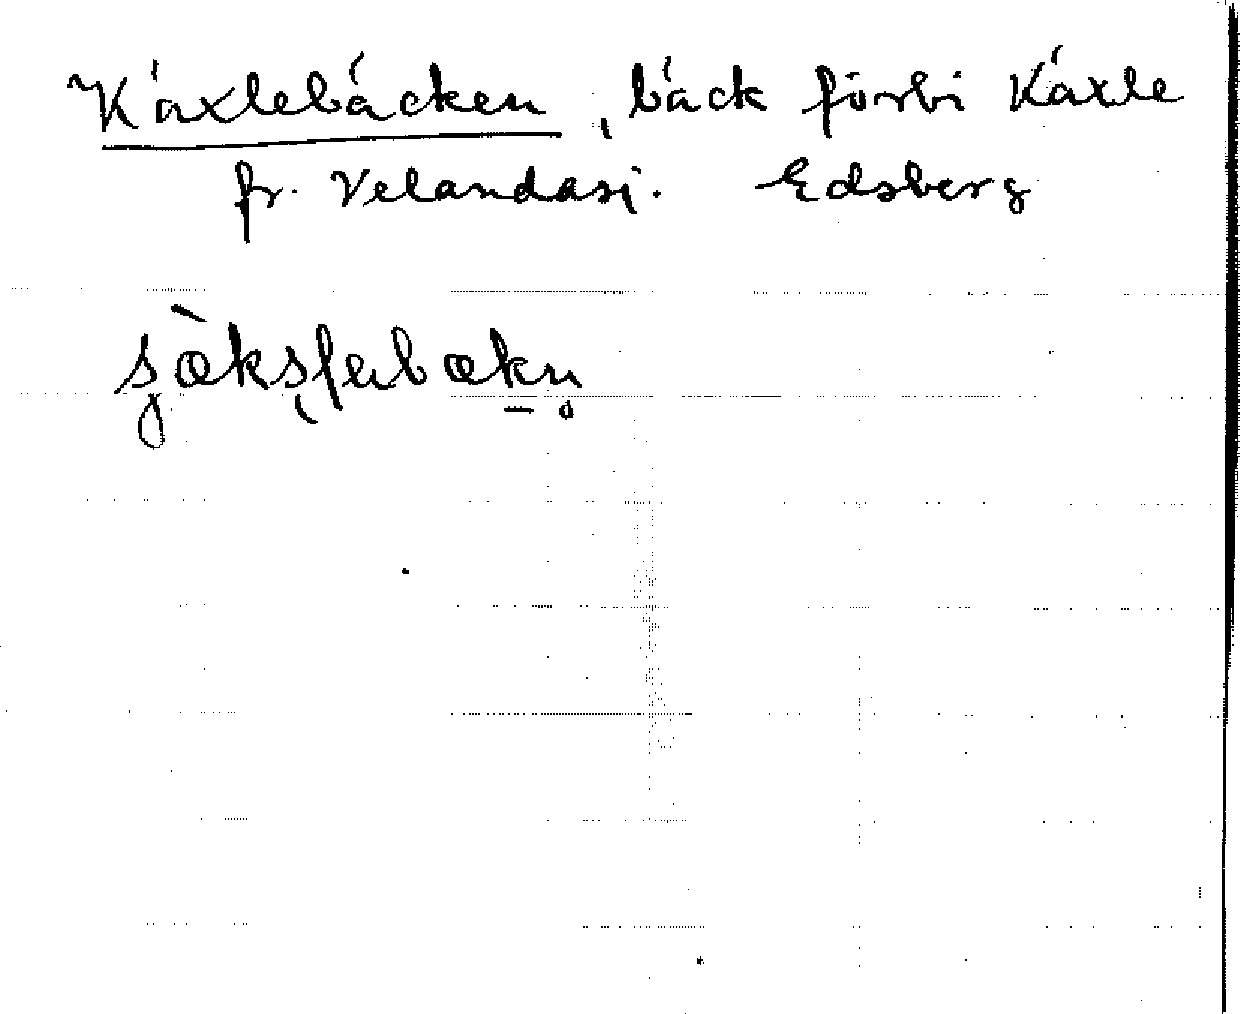 Käxlebäcken, bäck förbi Käxle
fr. Velandasj. Edsberg